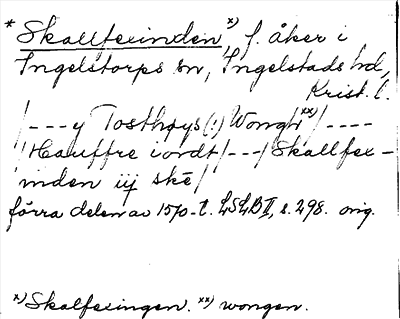 * Skallfexinden x) f. åker i
Ingelstorps sn, Ingelstads hd,
Krist. l.
/---y Tosthøys (!) Wongh xx)/----
/Hauffre iordt/---/Skallfex-
inden iij ske/
förra delen av 1570-t. LSLB II, s. 298. orig.
x) Skalfexingen. xx) wongen.